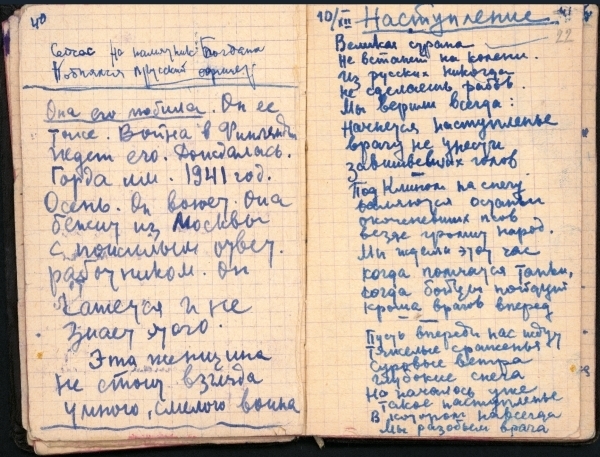 40
Сейчас на памятник Богдана
поднялся русский офицер
Она его любила. Он ее
тоже. Война в Финляндии
ждет его. Дождалась.
Горда им. 1941 год.
Осень. Он воюет. Она
бежит из Москвы
с пожилым ответ.
работником. Он
катется и не
знает этого.
Эта женщина
не стоит взгляда
умного, смелого воина
10/XII Наступление 41
22
Великая страна
Не встанет на колени.
Из русских никогда
не сделаешь рабов.
Мы верили всегда:
Начнется наступленье
врагу не унести
завшивевших голов
Под Клином на снегу
валяются остатки
окоченевших псов
везде громит народ.
Мы ждали этот час
когда помчатся танки,
когда бойцы пойдут
кроша врагов вперед
Пусть впереди нас ждут
тяжелые сраженья
суровые ветра
глубокие снега
Но началось уже
такое наступленье
В котором навсегда
Мы разобьем врага